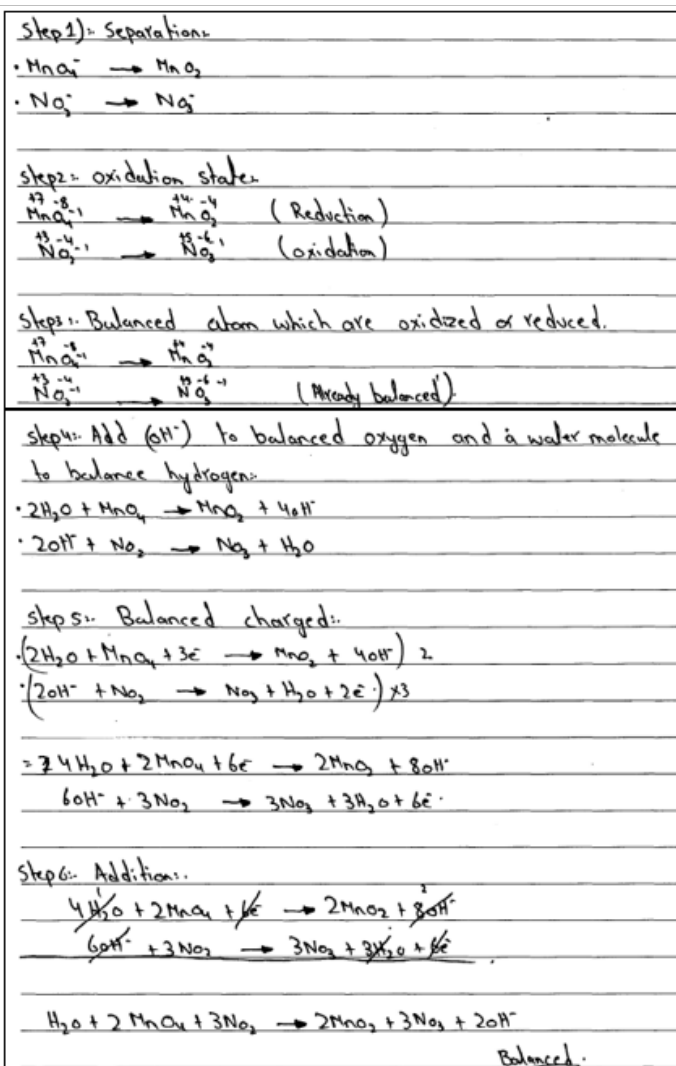 Step 1):- Separation:-
· MnO₄⁻ → MnO₂
· NO₂⁻ → NO₃⁻
Step2:- Oxidation state:-
+7 -8 +4 -4
MnO₄⁻¹ → MnO₂ (Reduction)
+3 -4 +5 -6
NO₂⁻¹ → NO₃⁻¹ (oxidation)
Step3:- Balanced atom which are oxidized or reduced.
+7 -8 +4 -4
MnO₄⁻¹ → MnO₂
+3 -4 +5 -6 -1
NO₂⁻¹ → NO₃ (Already balanced).
Step4:- Add (OH⁻) to balanced oxygen and a water molecule
to balance hydrogen:-
· 2H₂O + MnO₄ → MnO₂ + 4OH⁻
· 2OH⁻ + NO₂ → NO₃ + H₂O
Step 5:- Balanced charged:-
· (2H₂O + MnO₄ + 3e⁻ → MnO₂ + 4OH⁻) 2
· (2OH⁻ + NO₂ → NO₃ + H₂O + 2e⁻) x3
= 4H₂O + 2MnO₄ + 6e⁻ → 2MnO₂ + 8OH⁻
6OH⁻ + 3NO₂ → 3NO₃ + 3H₂O + 6e⁻
Step 6:- Addition:-
1 2
4H₂O + 2MnO₄ + 6e⁻ → 2MnO₂ + 8OH⁻
6OH⁻ + 3NO₂ → 3NO₃ + 3H₂O + 6e⁻
H₂O + 2MnO₄ + 3NO₂ → 2MnO₂ + 3NO₃ + 2OH⁻
Balanced.